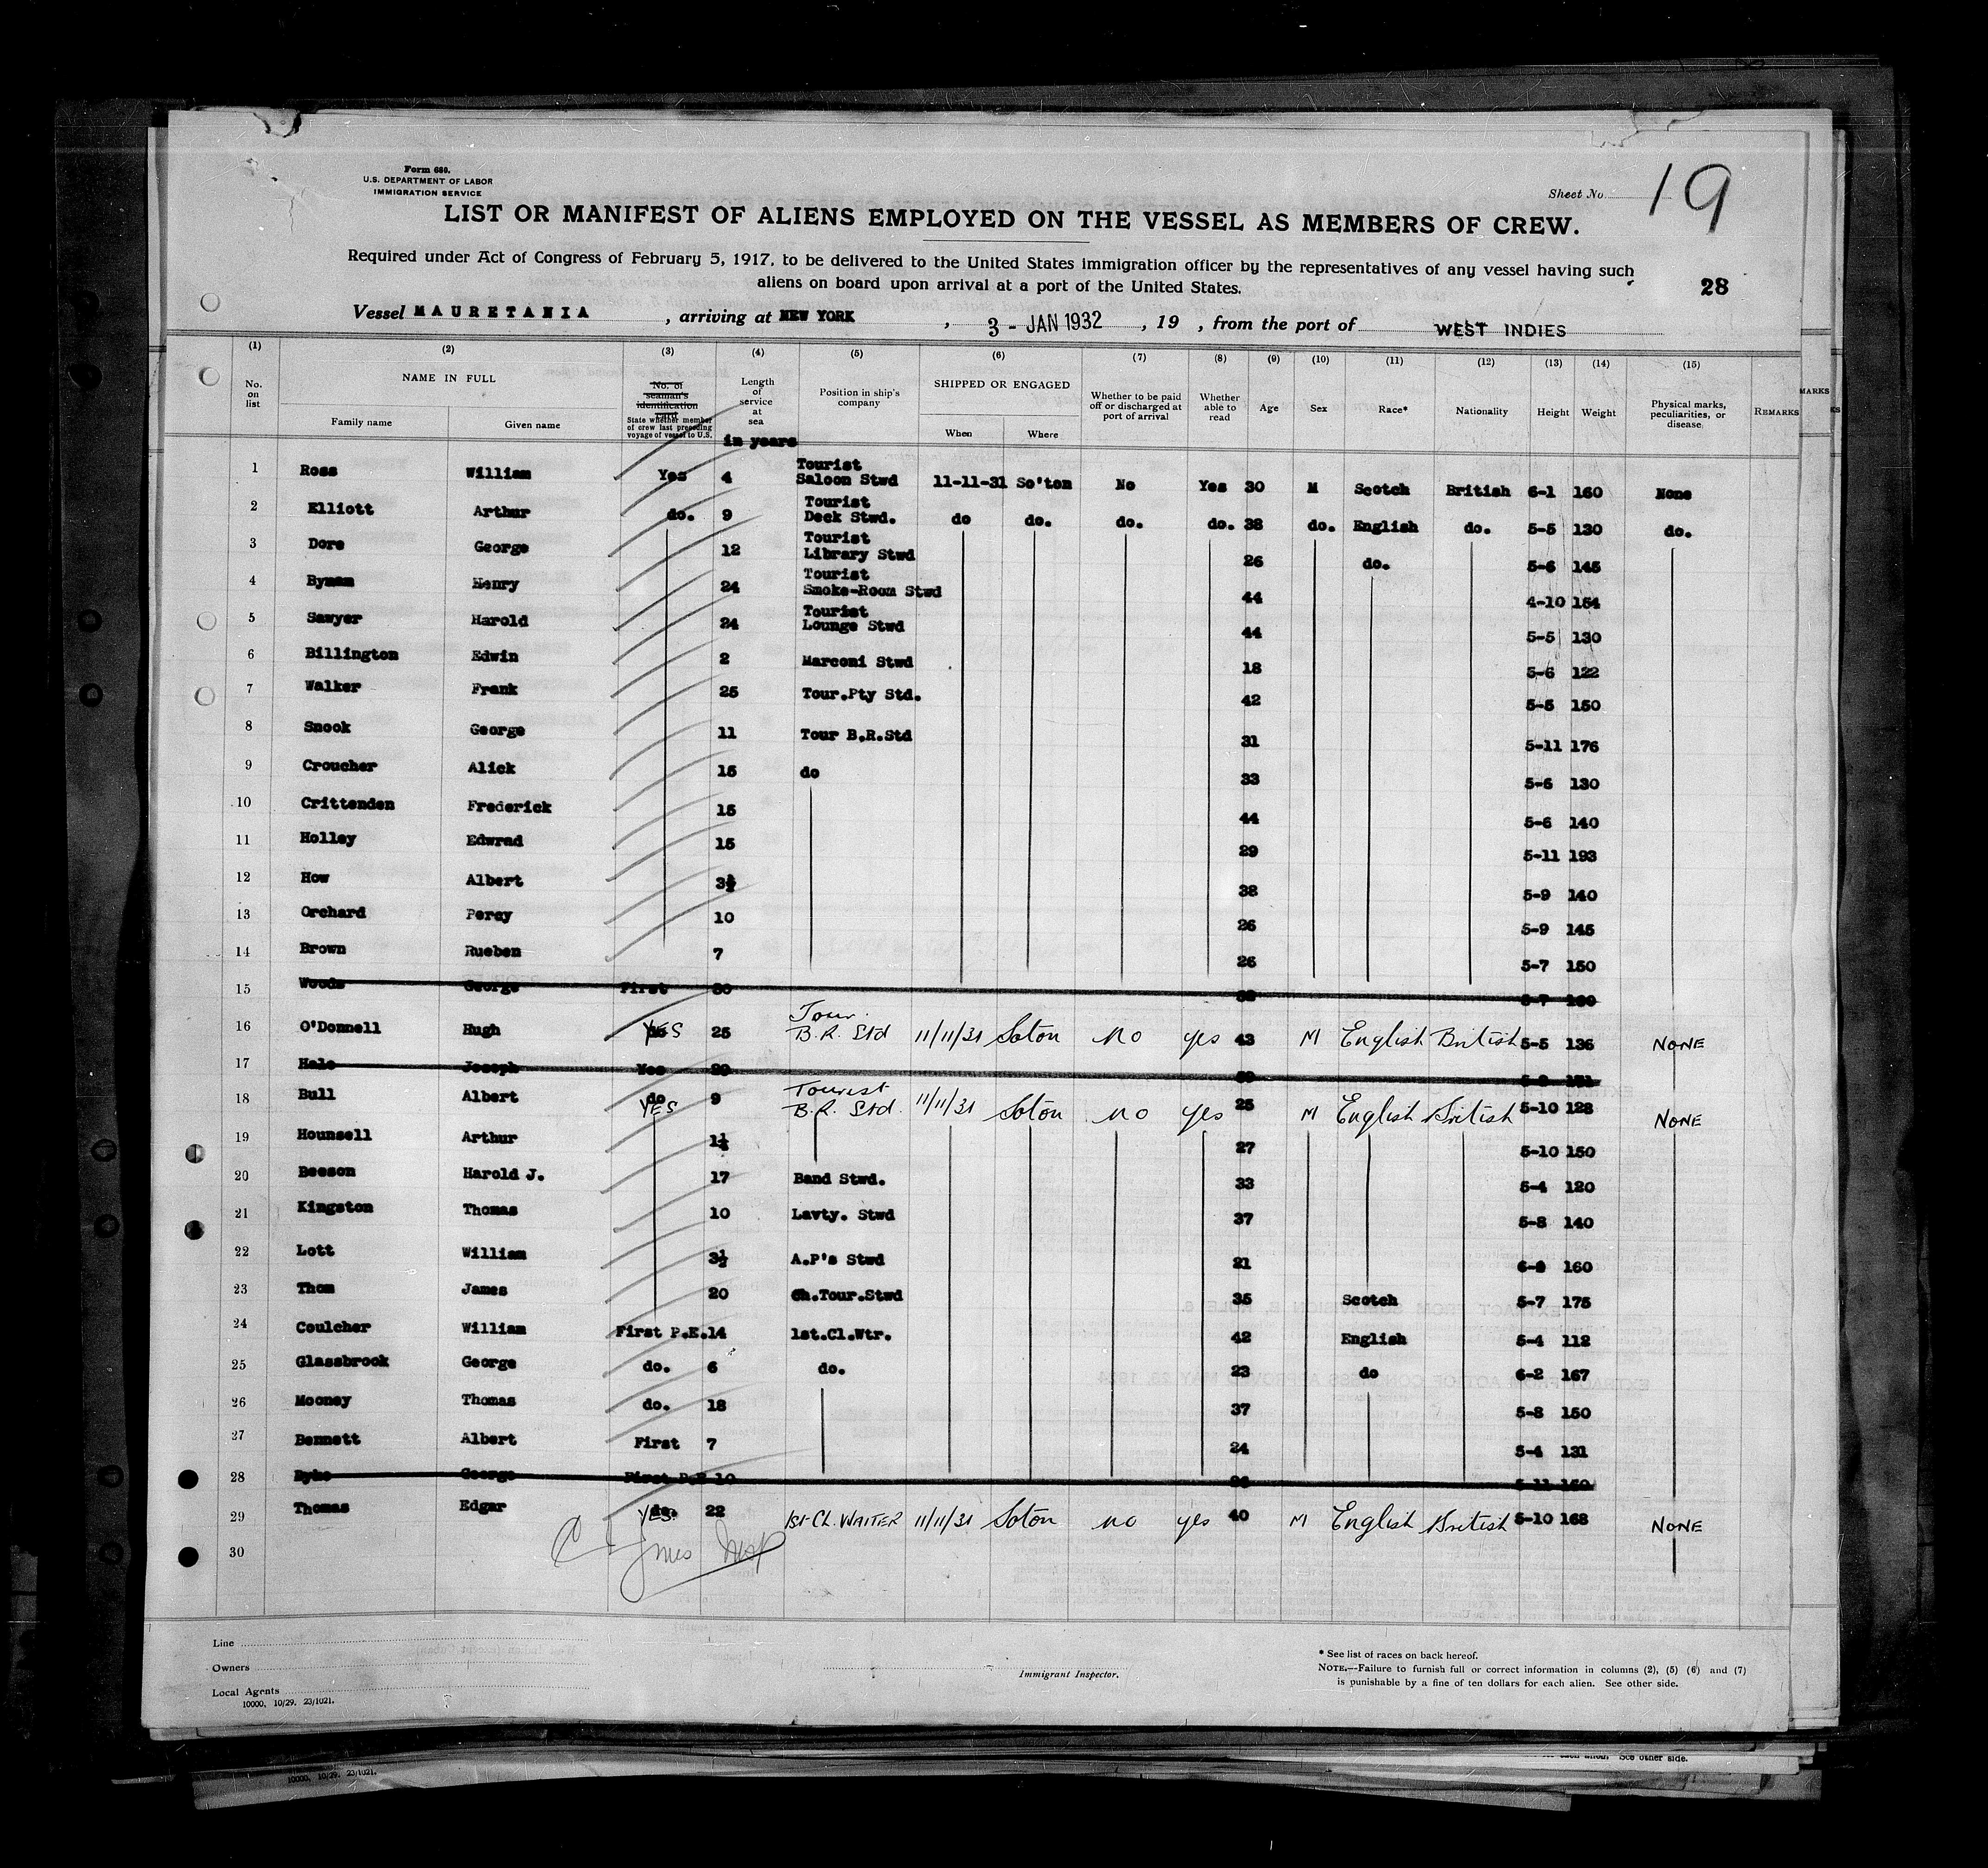 Form 680.
U.S. DEPARTMENT OF LABOR
IMMIGRATION SERVICE
Sheet No. 19
LIST OR MANIFEST OF ALIENS EMPLOYED ON THE VESSEL AS MEMBERS OF CREW.
Required under Act of Congress of February 5, 1917, to be delivered to the United States immigration officer by the representatives of any vessel having such
aliens on board upon arrival at a port of the United States.
28
Vessel MAURETANIA, arriving at NEW YORK, 3 - JAN 1932, 19 , from the port of WEST INDIES
(1) (2) (3) (4) (5) (6) (7) (8) (9) (10) (11) (12) (13) (14) (15)
No. on list NAME IN FULL Family name Given name No. of seaman's identification card State whether member of crew last preceding voyage of vessel to U.S. Length of service at sea in years Position in ship's company SHIPPED OR ENGAGED When Where Whether to be paid off or discharged at port of arrival Whether able to read Age Sex Race* Nationality Height Weight Physical marks, peculiarities, or disease REMARKS
MARKS
1 Ross William Yes 4 Tourist Saloon Stwd 11-11-31 So'ton No Yes 30 M Scotch British 6-1 160 None
2 Elliott Arthur do. 9 Tourist Deck Stwd. do do. do. do. 38 do. English do. 5-5 130 do.
3 Dore George 12 Tourist Library Stwd 26 do. 5-6 145
4 Bynam Henry 24 Tourist Smoke-Room Stwd 44 4-10 154
5 Sawyer Harold 24 Tourist Lounge Stwd 44 5-5 130
6 Billington Edwin 2 Marconi Stwd 18 5-6 122
7 Walker Frank 25 Tour.Pty Std. 42 5-5 150
8 Snook George 11 Tour B.R.Std 31 5-11 176
9 Croucher Alick 15 do 33 5-6 130
10 Crittenden Frederick 15 44 5-6 140
11 Holley Edwrad 15 29 5-11 193
12 How Albert 3½ 38 5-9 140
13 Orchard Percy 10 26 5-9 145
14 Brown Rueben 7 26 5-7 150
15 Woods George First 30 5-7
16 O'Donnell Hugh YES 25 Tour. B.R. Std 11/11/31 Soton no yes 43 M English British 5-5 136 NONE
17 Hale Joseph Yes
18 Bull Albert do YES 9 Tourist B.R. Std. 11/11/31 Soton no yes 25 M English British 5-10 128 NONE
19 Hounsell Arthur 1¼ 27 5-10 150
20 Beeson Harold J. 17 Band Stwd. 33 5-4 120
21 Kingston Thomas 10 Lavty. Stwd 37 5-8 140
22 Lott William 3½ A.P's Stwd 21 6-0 160
23 Thom James 20 Ch.Tour.Stwd 35 Scotch 5-7 175
24 Coulcher William First P.E. 14 1st.Cl.Wtr. 42 English 5-4 112
25 Glassbrook George do. 6 do. 23 do 6-2 167
26 Mooney Thomas do. 18 37 5-8 150
27 Bennett Albert First 7 24 5-4 131
28 Dyke George First P.E 10 5-11 150
29 Thomas Edgar do. YES 22 1st-CL. WAITER 11/11/31 Soton no yes 40 M English British 5-10 168 NONE
30
Line
Owners
Local Agents
10000, 10/29. 23/1021.
Immigrant Inspector.
* See list of races on back hereof.
NOTE.—Failure to furnish full or correct information in columns (2), (5) (6) and (7)
is punishable by a fine of ten dollars for each alien. See other side.
See other side.
10000, 10/29. 23/1021.